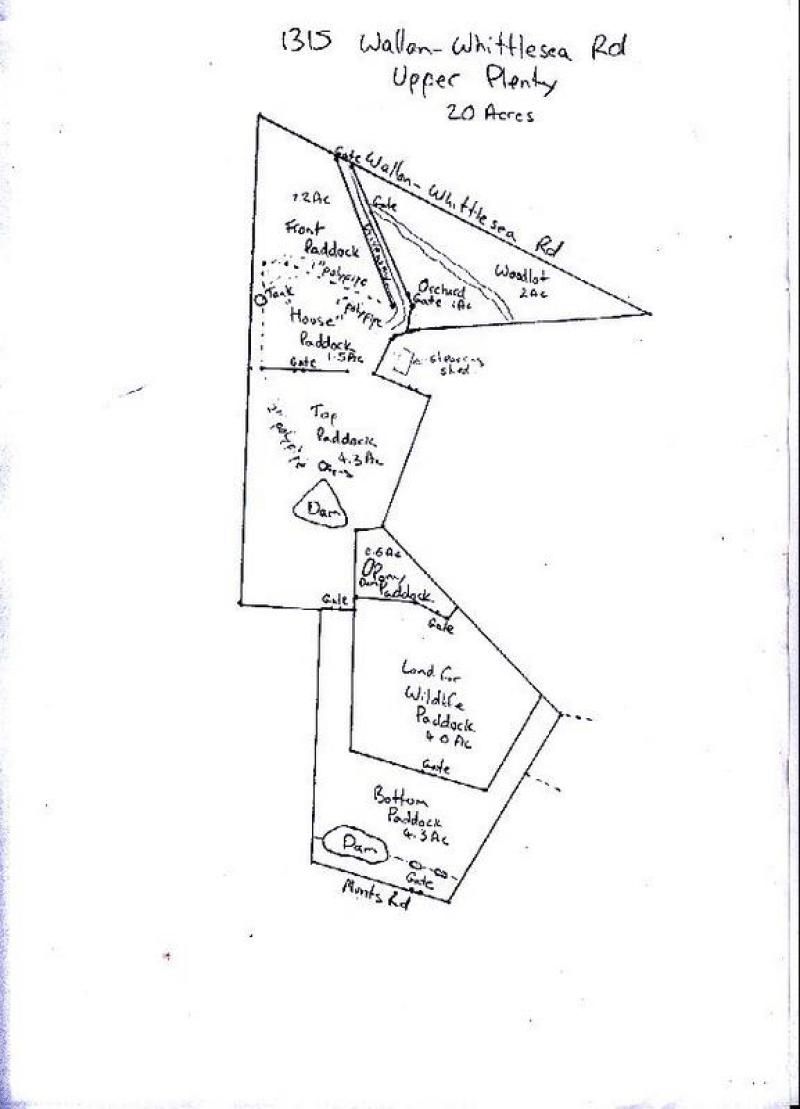 1315 Wallan-Whittlesea Rd
Upper Plenty
20 Acres
Gate
Wallan-Whittlesea Rd
Gate
Driveway
Front
Paddock
1" polypipe
Woodlot
2Ac
Orchard
Gate 1Ac
Tank
1" polypipe
"House"
Paddock
1.5Ac
Gate
shearing
shed
Top
Paddock
4.3Ac
polypipe
Dam
0.6Ac
Pony
Dam Paddock
Gate
Gate
Land for
Wildlife
Paddock
4.0Ac
Gate
Bottom
Paddock
4.3Ac
Dam
Gate
Munts Rd